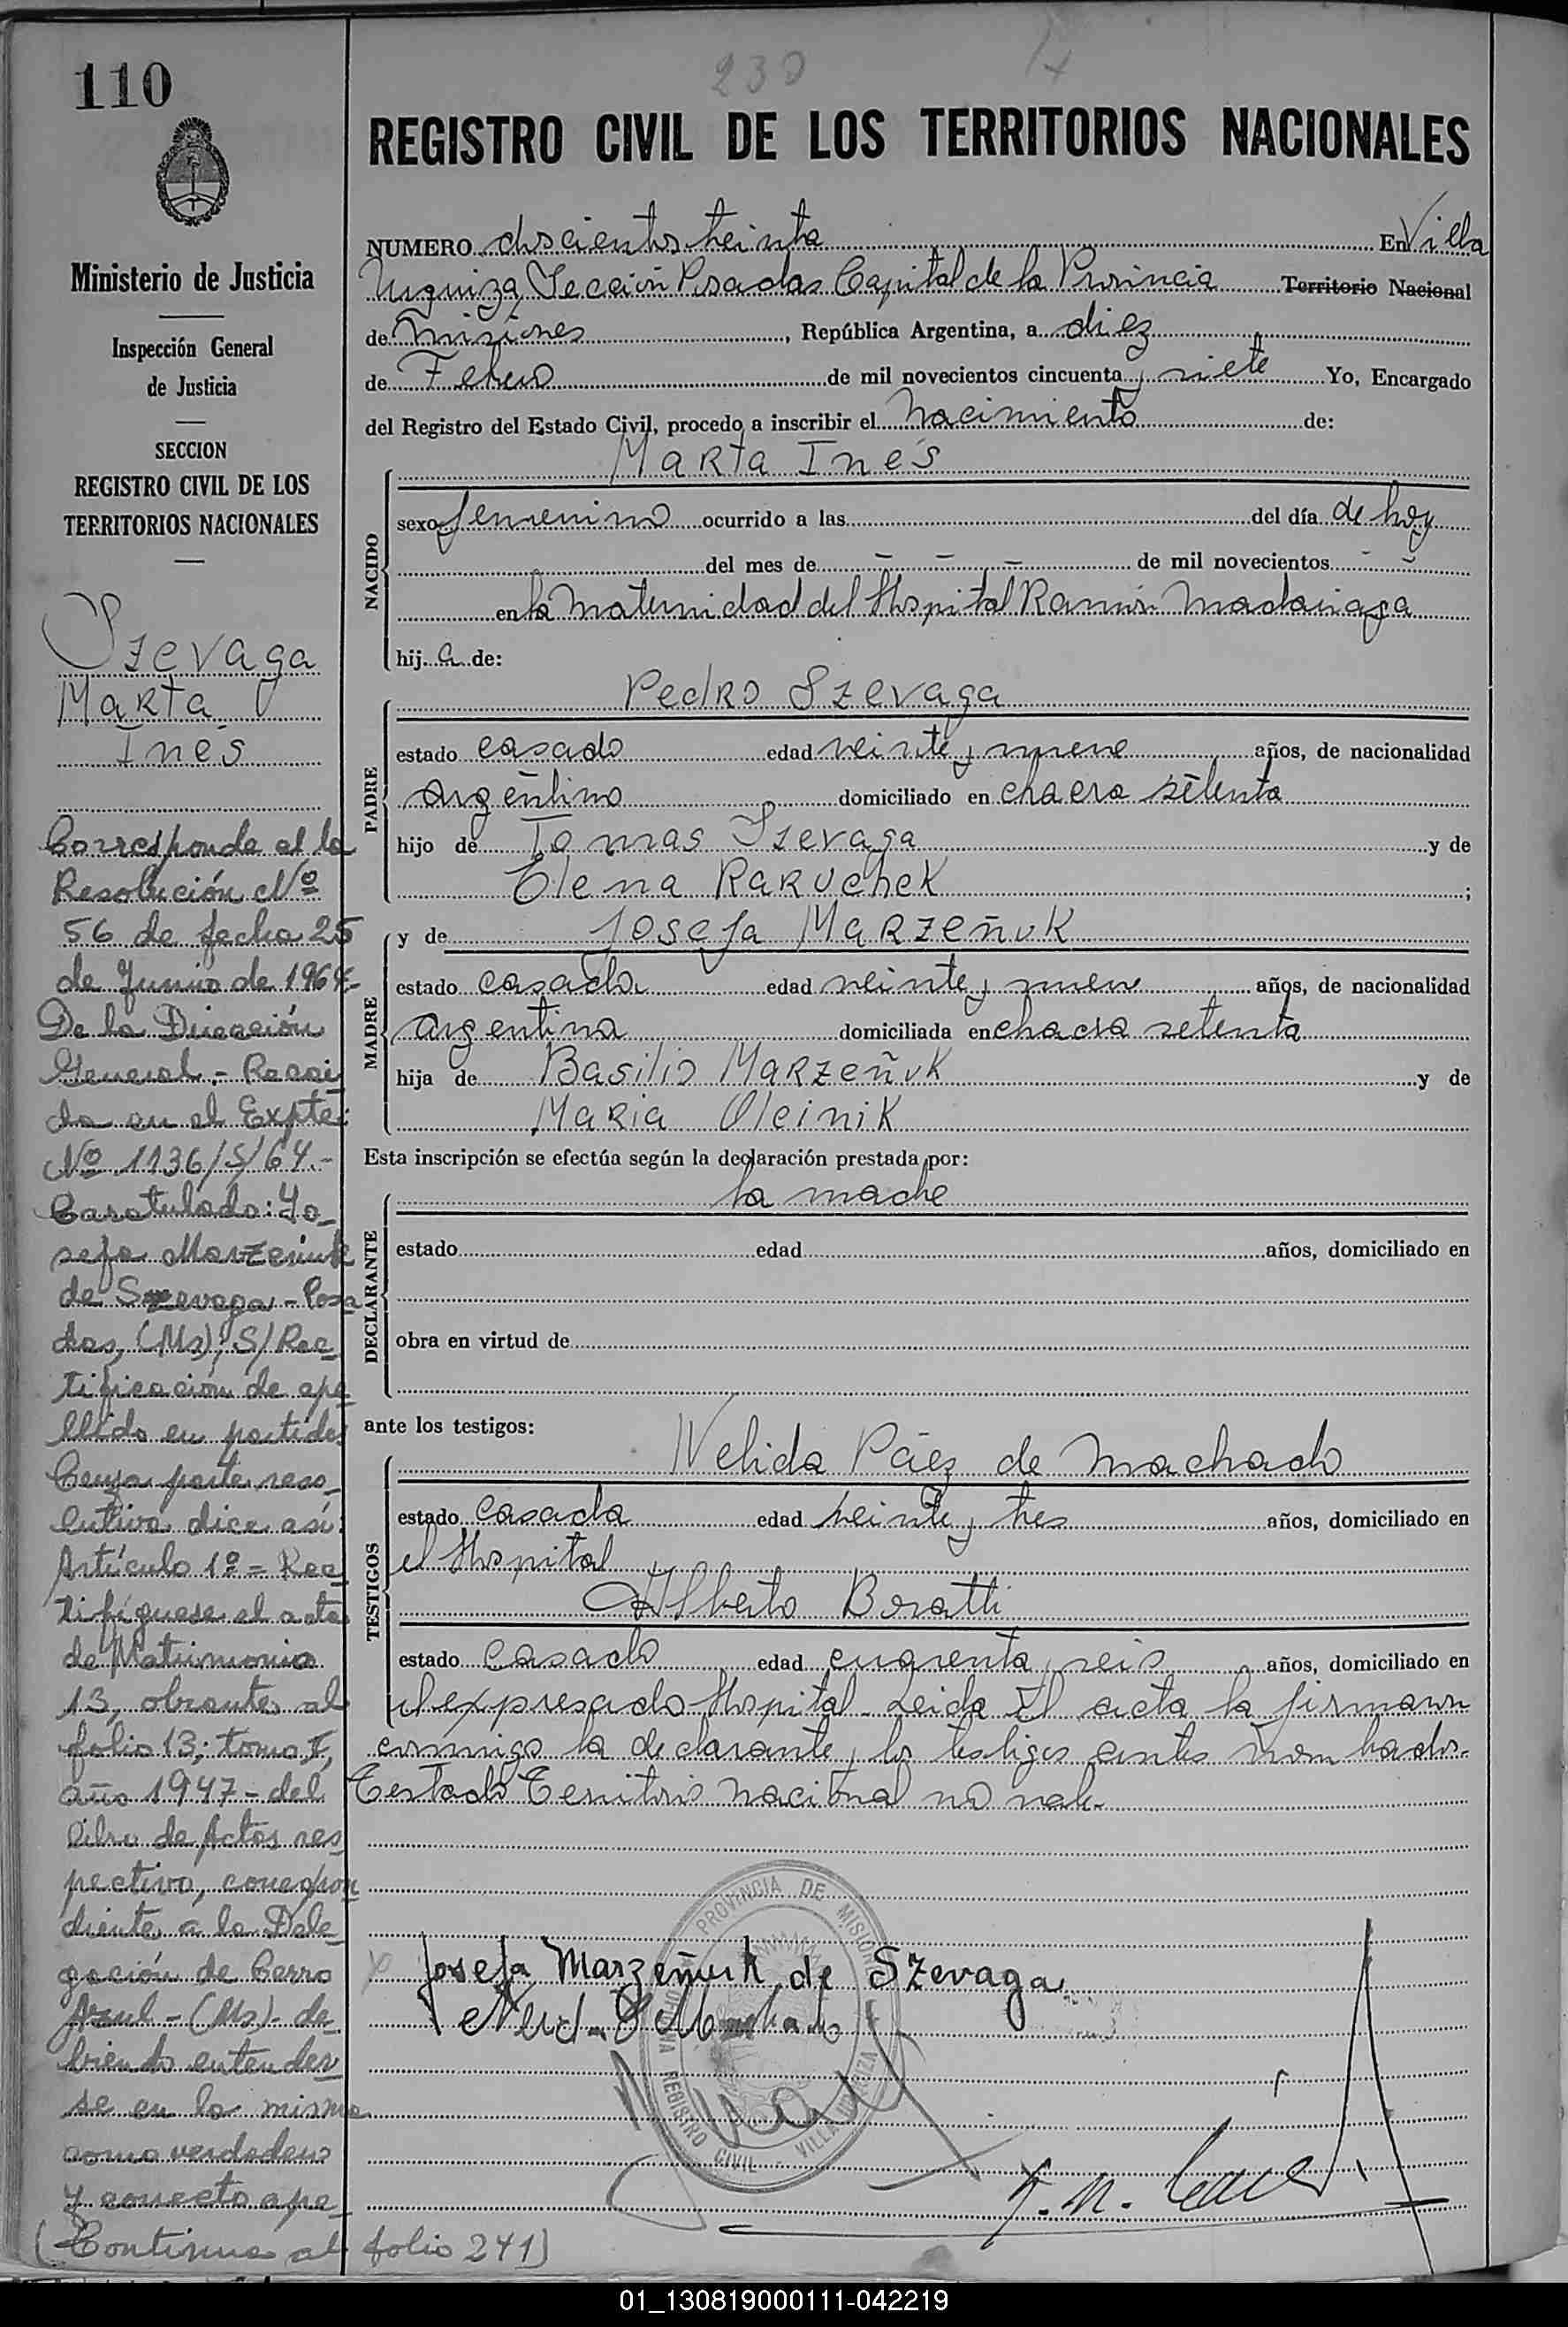 110
230
REGISTRO CIVIL DE LOS TERRITORIOS NACIONALES
Ministerio de Justicia
Inspección General
de Justicia
SECCION
REGISTRO CIVIL DE LOS
TERRITORIOS NACIONALES
Szevaga
Marta
Inés
Corresponde al la
Resolución Nº
56 de fecha 25
de Junio de 1964-
De la Dirección
General.- Recai
da en el Expte:
Nº 1136/S/64.-
Caratulado: Jo-
sefa Marzeniuk
de Szevaga - Posa
das, (Ms), S/ Rec
tificación de ape
llido en partidas
Cuya parte reso-
lutiva dice así:
Artículo 1º = Rec
tifíquese el acta
de Matrimonio
13, obrante al
folio 13; tomo I,
año 1947 - del
libro de Actas res
pectivo, correspon
diente a la Dele
gación de Cerro
Azul - (Ms)- de
biendo entender
se en la misma
como verdadero
y correcto ape
(Continua al folio 241)
NUMERO doscientos treinta En Villa
Urquiza, Sección Posadas Capital de la Provincia Territorio Nacional
de Misiones, República Argentina, a diez
de Febrero de mil novecientos cincuenta y siete Yo, Encargado
del Registro del Estado Civil, procedo a inscribir el Nacimiento de:
Marta Inés
NACIDO
sexo femenino ocurrido a las del día de hoy
del mes de - - - de mil novecientos - -
en la Maternidad del Hospital Ramón Madariaga
hij a de:
Pedro Szevaga
PADRE
estado casado edad veinte y nueve años, de nacionalidad
argentino domiciliado en chacra setenta
hijo de Tomas Szevaga y de
Elena Raruchek ;
y de Josefa Marzeñuk
MADRE
estado casada edad veinte y nueve años, de nacionalidad
argentina domiciliada en chacra setenta
hija de Basilio Marzeñuk y de
Maria Oleinik
Esta inscripción se efectúa según la declaración prestada por:
la madre
DECLARANTE
estado edad años, domiciliado en
obra en virtud de
ante los testigos:
Nelida Páez de Machado
TESTIGOS
estado casada edad veinte y tres años, domiciliado en
el Hospital
Alberto Boratti
estado casado edad cuarenta y seis años, domiciliado en
el expresado Hospital. Leida el acta la firmaron
conmigo la declarante y los testigos antes nombrados.
Testado Territorio Nacional no vale.
PROVINCIA DE MISIONES
REGISTRO CIVIL - VILLA URQUIZA
Josefa Marzeñuk de Szevaga
01_130819000111-042219